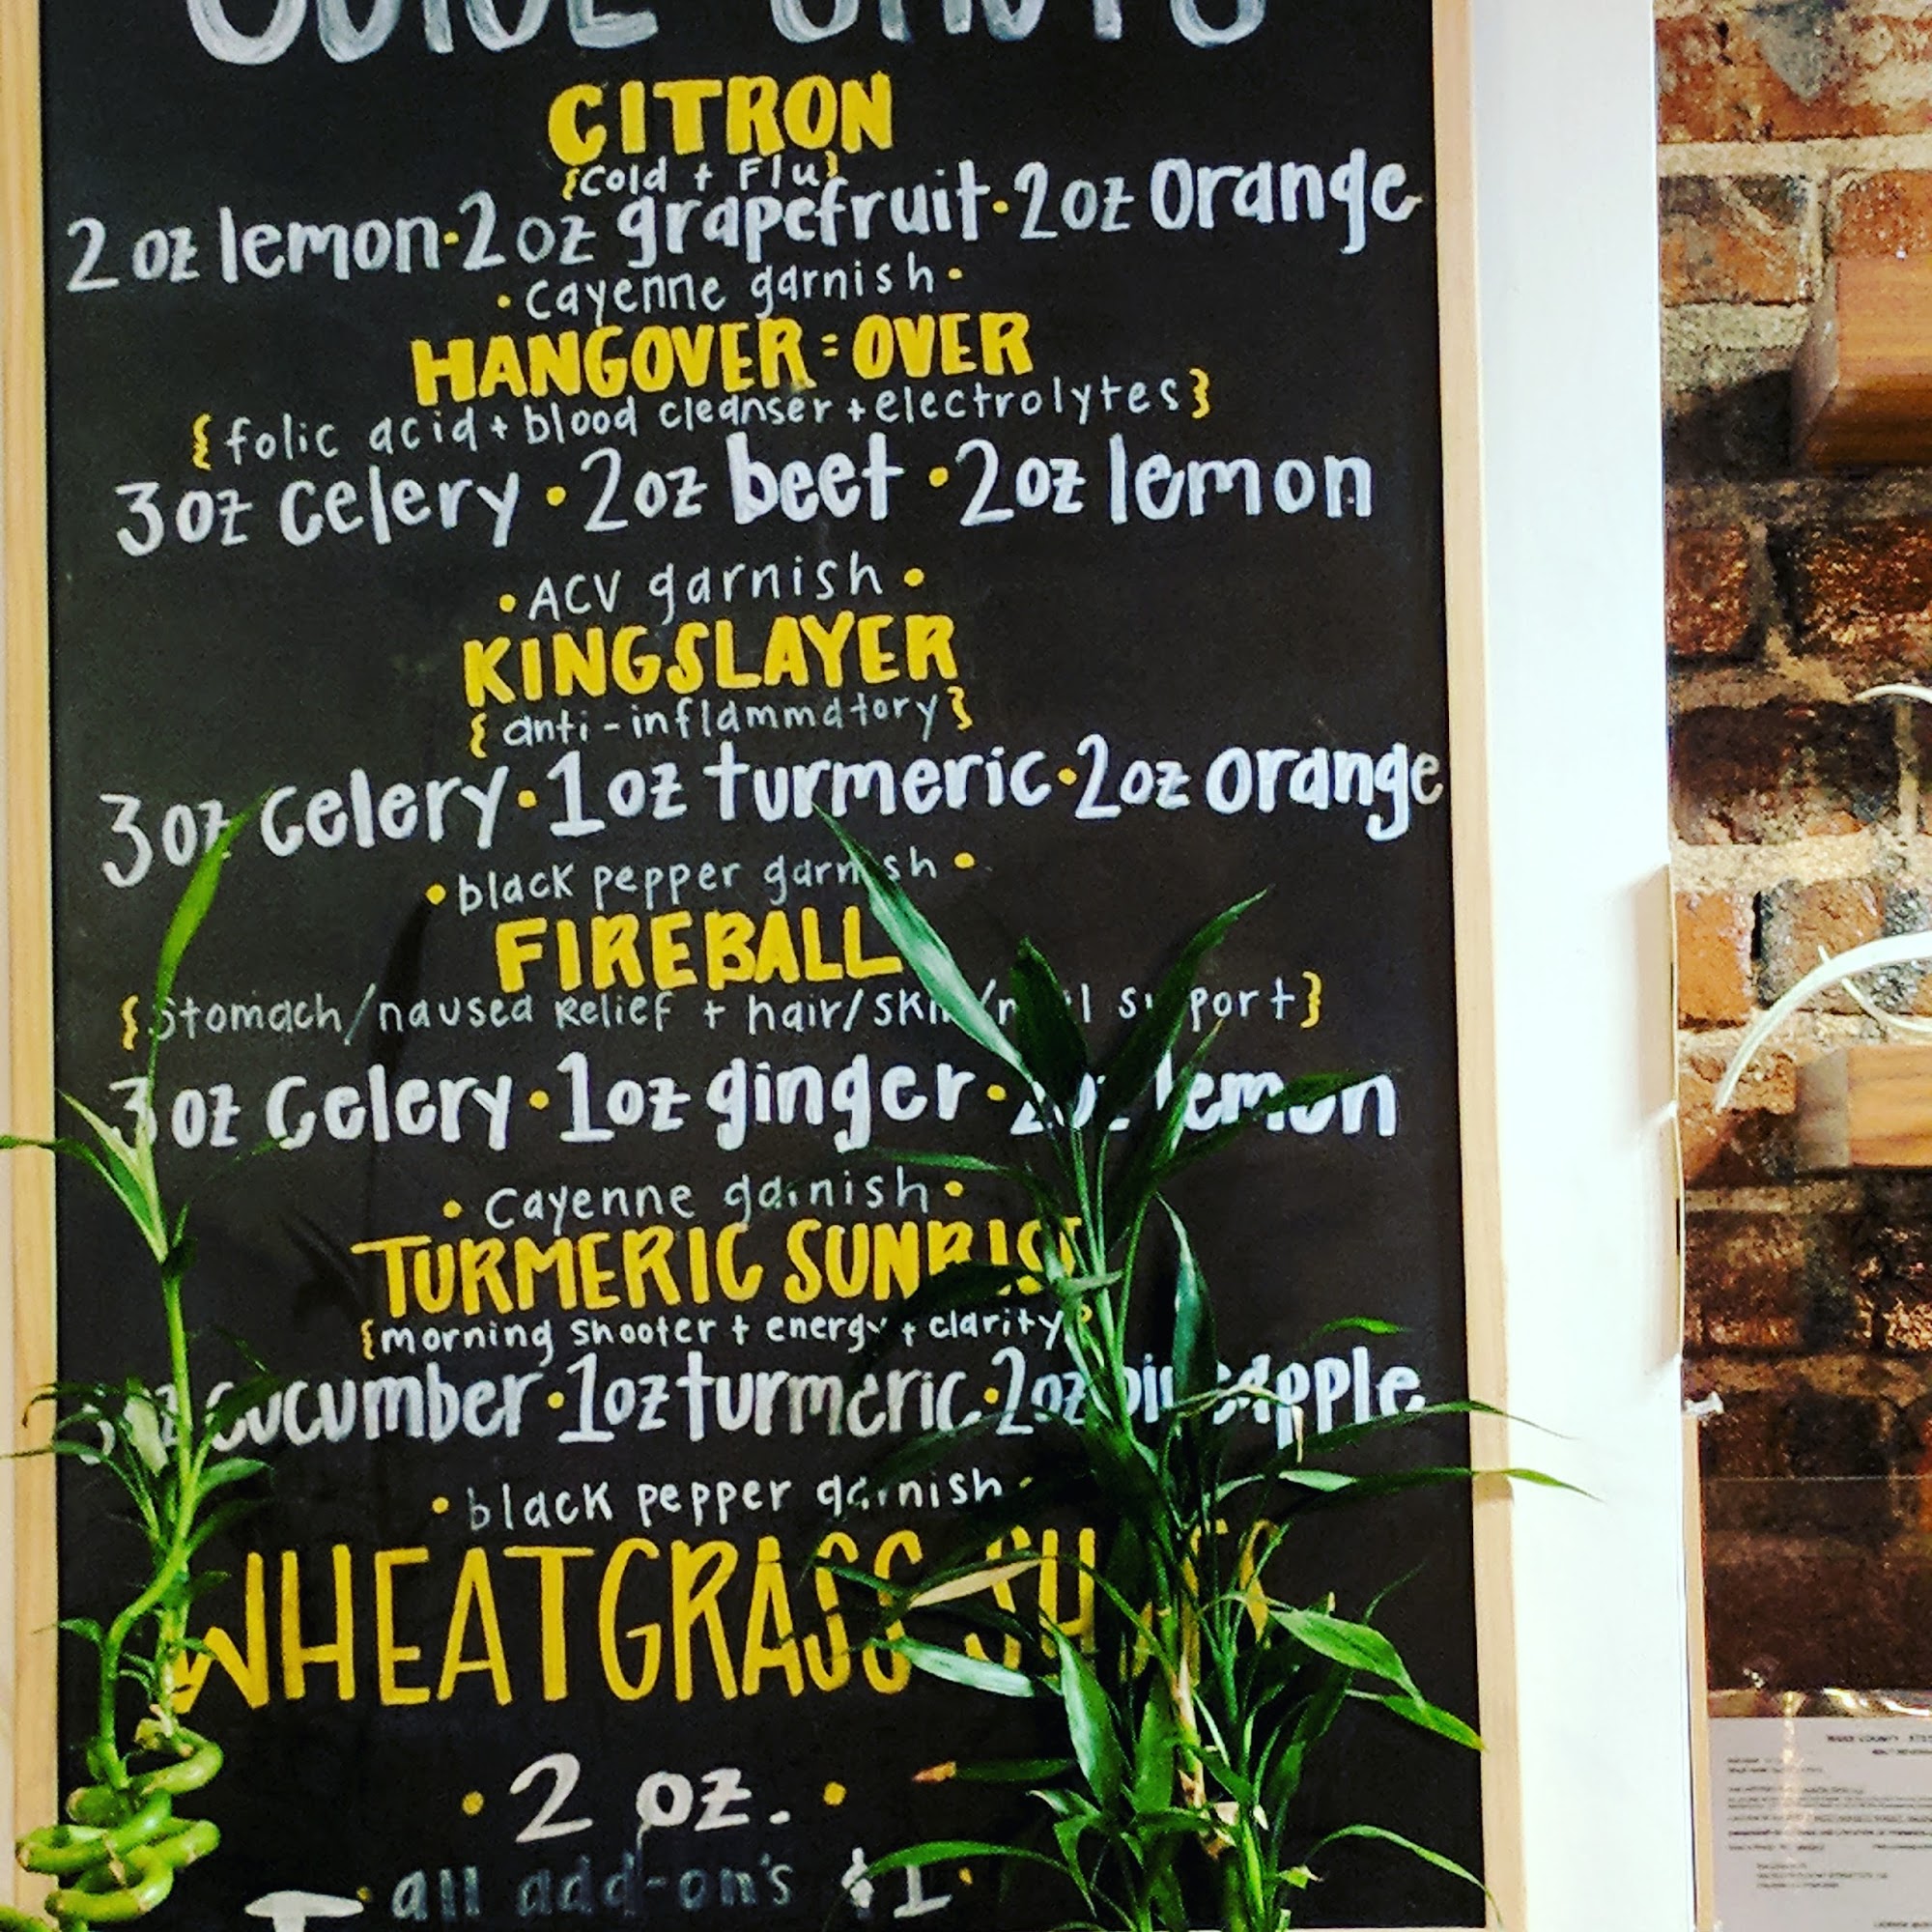 JUICE SHOTS
CITRON
{cold + Flu}
2 oz lemon · 2 oz grapefruit · 2oz orange
· Cayenne garnish ·
HANGOVER = OVER
{folic acid + blood cleanser + electrolytes}
3oz celery · 2oz beet · 2oz lemon
· ACV garnish ·
KINGSLAYER
{anti-inflammatory}
3oz celery · 1oz turmeric · 2oz orange
· black pepper garnish ·
FIREBALL
{Stomach/nausea Relief + hair/skin/nail support}
3oz Celery · 1oz ginger · 2oz lemon
· Cayenne garnish ·
TURMERIC SUNRISE
{morning shooter + energy + clarity}
3oz cucumber · 1oz turmeric · 2oz pineapple
· black pepper garnish ·
WHEATGRASS
· 2 oz. ·
· all add-on's $1 ·